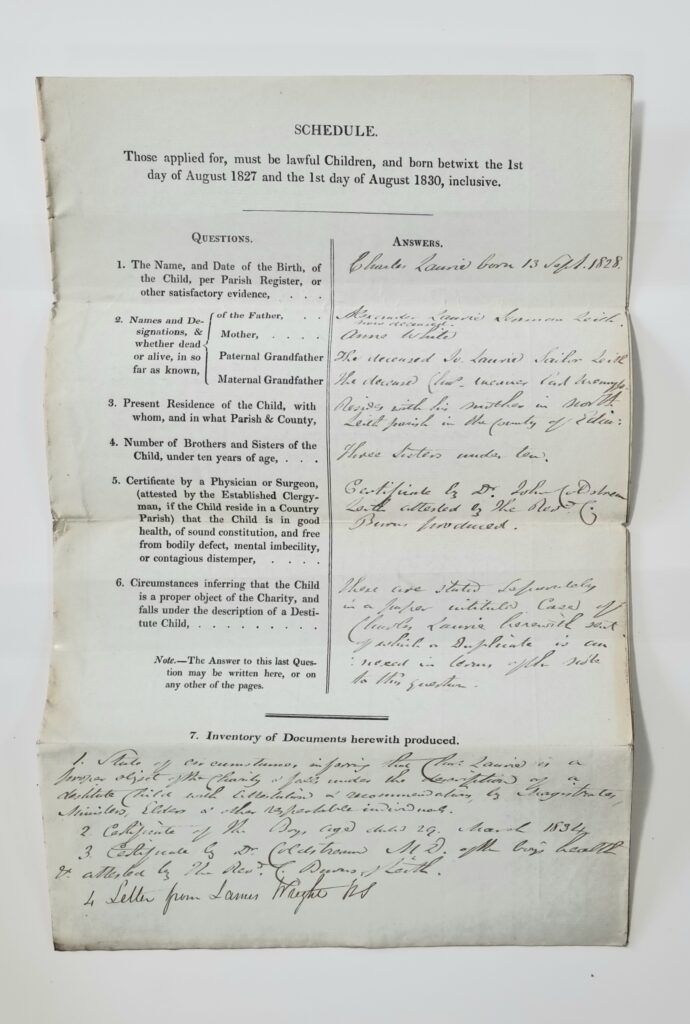 SCHEDULE.
Those applied for, must be lawful Children, and born betwixt the 1st
day of August 1827 and the 1st day of August 1830, inclusive.
QUESTIONS.
1. The Name, and Date of the Birth, of
the Child, per Parish Register, or
other satisfactory evidence, . . . .
2. Names and De-
signations, &
whether dead
or alive, in so
far as known,
of the Father, . . . .
Mother, . . . .
Paternal Grandfather
Maternal Grandfather
3. Present Residence of the Child, with
whom, and in what Parish & County,
4. Number of Brothers and Sisters of the
Child, under ten years of age, . . .
5. Certificate by a Physician or Surgeon,
(attested by the Established Clergy-
man, if the Child reside in a Country
Parish) that the Child is in good
health, of sound constitution, and free
from bodily defect, mental imbecility,
or contagious distemper, . . . . .
6. Circumstances inferring that the Child
is a proper object of the Charity, and
falls under the description of a Desti-
tute Child, . . . . . . . . .
Note.—The Answer to this last Ques-
tion may be written here, or on
any other of the pages.
ANSWERS.
Charles Laurie born 13 Sept. 1828.
Alexander Laurie Leith.
now deceased.
Anne White
The deceased Jo. Laurie Sailor Leith
The deceased Chas.
Resides with his mother in North
Leith parish in the County of Edin:
Three Sisters under ten.
Certificate by Dr. John Coldstream
Leith attested by the Revd. C.
Burns produced.
These are stated separately
in a paper intituled Case of
Charles Laurie herewith sent
of which a Duplicate is an
nexed in terms of the note
to this question.
7. Inventory of Documents herewith produced.
1. State of circumstances inferring that Chas. Laurie is a
proper object of the Charity & falls under the description of a
destitute Child with attestation & recommendation by Magistrates,
Ministers, Elders & other respectable individuals.
2 Certificate of the Boys age dated 29. March 1834
3. Certificate by Dr Coldstream M.D. of the boy's health
& attested by The Revd. C. Burns of Leith.
4 Letter from James Wright WS